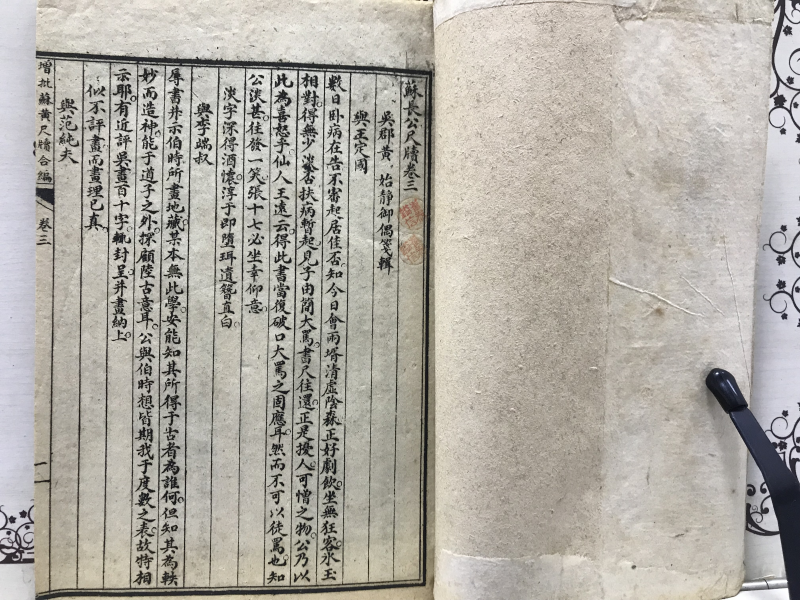 蘇長公尺牘卷三
吳郡黃 始靜御偶箋輯
與王定國
數日卧病在告不審起居佳否知今日會兩壻清虛陰森正好劇飲坐無狂客氷玉
相對得無少淡否扶病暫起見子由簡大罵書尺往還正是擾人可憎之物公乃以
此為喜怒乎仙人王遠云得此書當復破口大罵之固應耳然而不可以徒罵也知
公淡甚往發一笑張十七必坐幸仰意
淡字深得酒懷淳于即墮珥遺簪直白
與李端叔
辱書并示伯時所畫地藏某本無此學安能知其所得于古者為誰何但知其為軼
妙而造神能于道子之外探顧陸古意耳公與伯時想皆期我于度數之表故特相
示耶有近評吳畫百十字輒封呈并畫納上
似不評畫而畫理已真
與范純夫
增批蘇黃尺牘合編
卷三
一